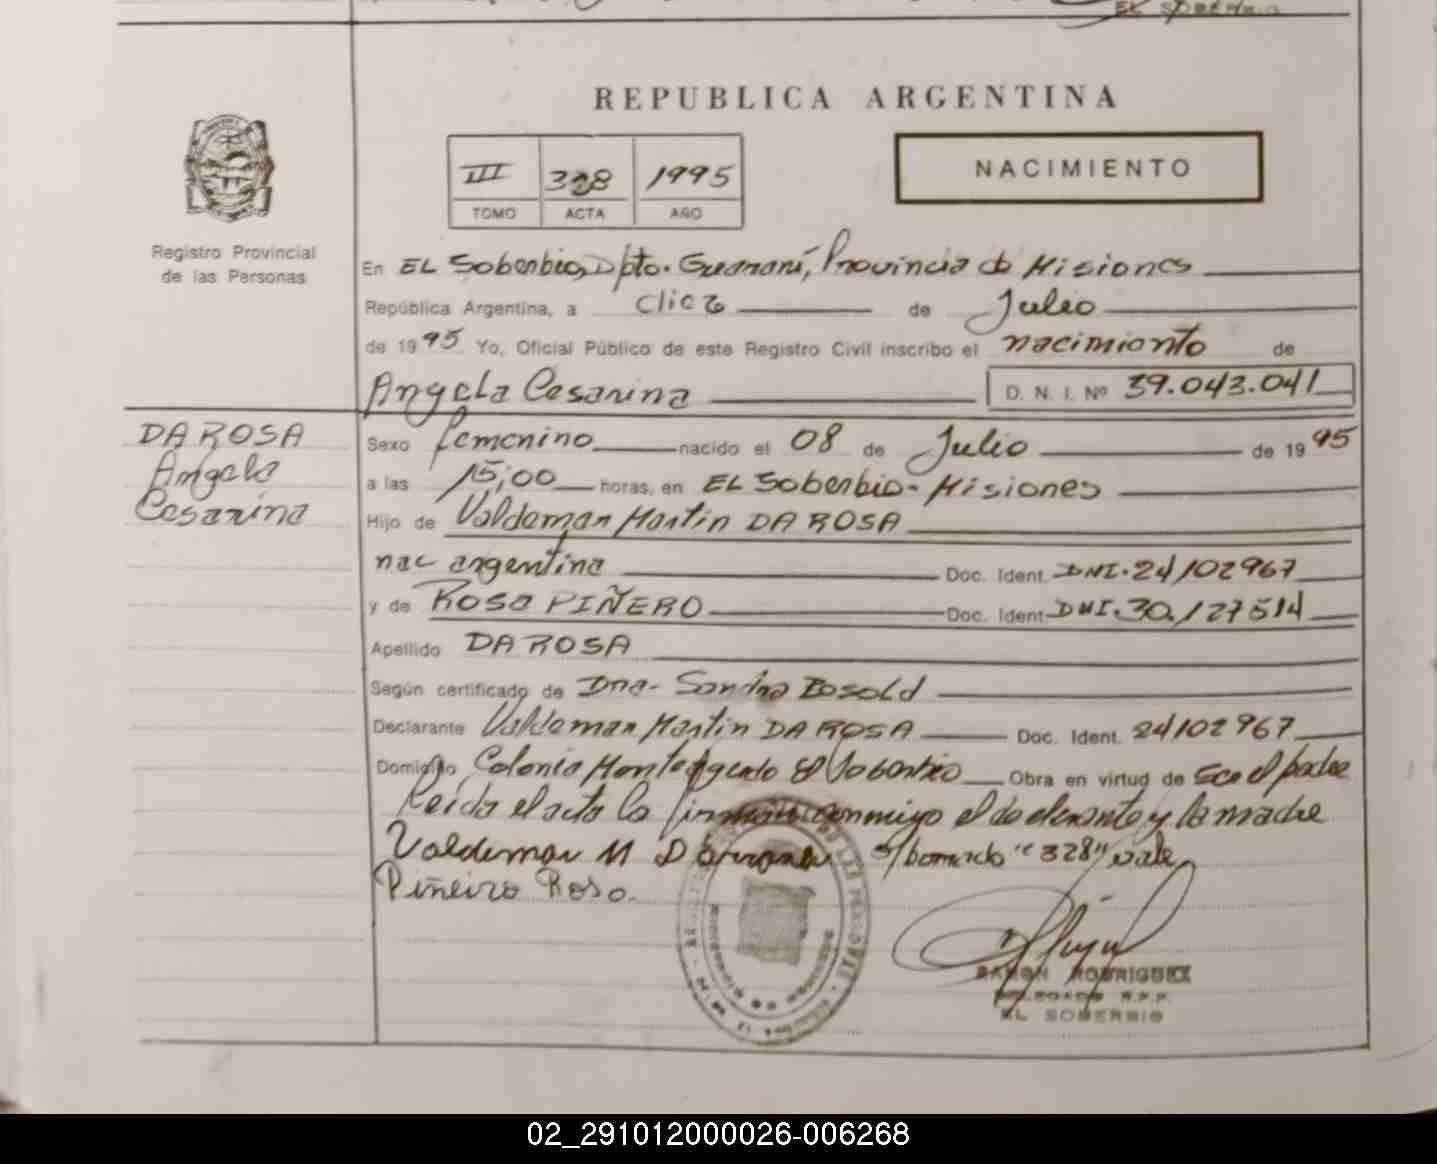 EL SOBERBIO
REPUBLICA ARGENTINA
III 328 1995
TOMO ACTA AÑO
NACIMIENTO
Registro Provincial
de las Personas
En EL Soberbio, Dpto. Guaraní, Provincia de Misiones
República Argentina, a diez de Julio
de 1995 Yo, Oficial Público de este Registro Civil inscribo el nacimiento de
Angela Cesarina D. N. I. Nº 39.043.041
DA ROSA
Angela
Cesarina
Sexo femenino nacido el 08 de Julio de 1995
a las 15,00 horas, en EL Soberbio - Misiones
Hijo de Valdemar Martin DA ROSA
nac argentina Doc. Ident. DNI. 24102967
y de ROSA PIÑERO Doc. Ident DNI. 30.127514
Apellido DA ROSA
Según certificado de Dra. Sandra Bosold
Declarante Valdemar Martin DA ROSA Doc. Ident. 24102967
Domicilio Colonia Monteagudo El Soberbio Obra en virtud de ser el padre
Leida el acta la firman conmigo el declarante y la madre
Valdemar M s/borrado "328" vale
Piñeiro Rosa.
RAMON RODRIGUEZ
DELEGADO R.P.P.
EL SOBERBIO
02_291012000026-006268